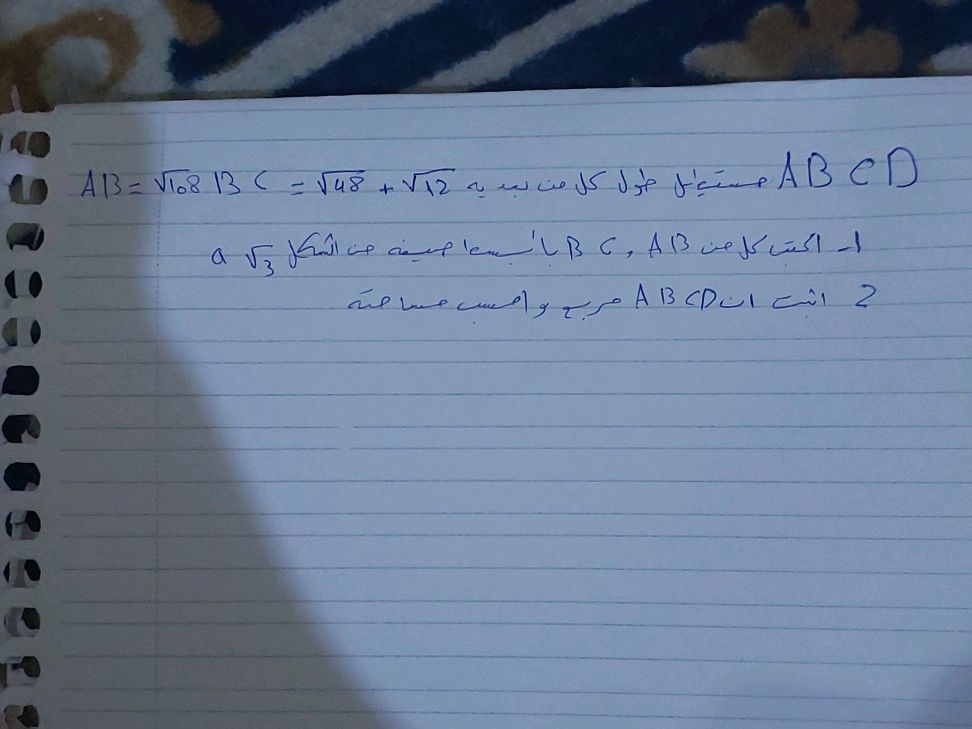 ABCD مستطيل طول كل من بعديه BC = √48 + √12 AB = √108
1- اكتب كل من AB , BC بأبسط صيغة من الشكل a√3
2 اثبت ان ABCD مربع واحسب مساحته